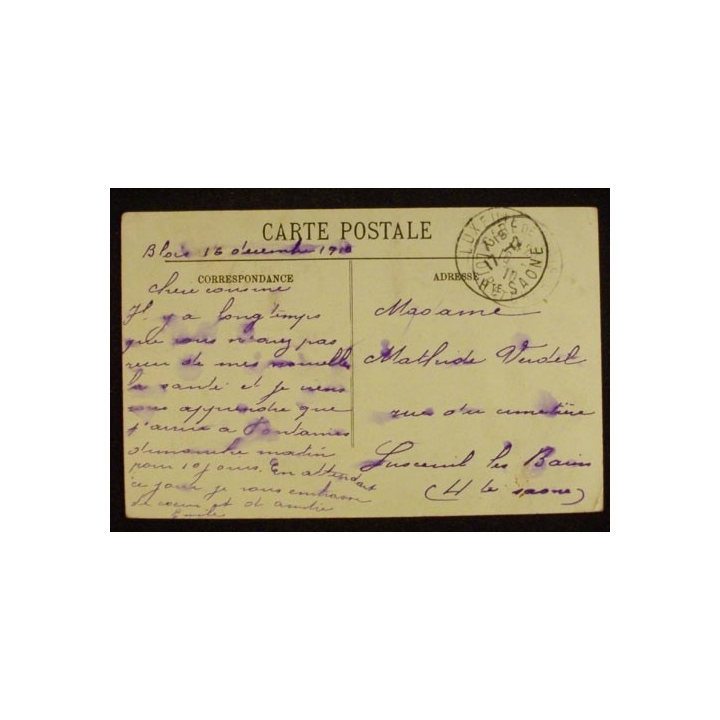 CARTE POSTALE
Blois 16 décembre 1910
CORRESPONDANCE
chère cousine
Il y a longtemps
que vous n'avez pas
de mes nouvelles
la santé et je viens
vous apprendre que
j'arrive à Fontaines
dimanche matin
pour 10 jours. En attendant
ce jour je vous embrasse
de coeur et d'amitié
Emile
ADRESSE
Madame
Mathilde Verdel
rue du cimetière
Luxeuil les Bains
(Hte Saône)
LUXEUIL
17 - 12
10
SAONE